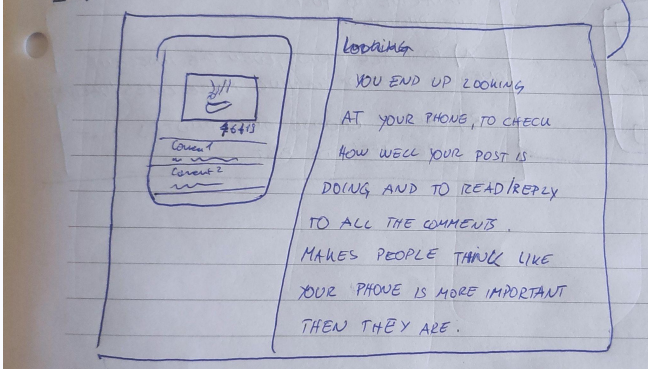 Coment 1
Coment 2
Looking
YOU END UP LOOKING
AT YOUR PHONE, TO CHECK
HOW WELL YOUR POST IS
DOING AND TO READ/REPLY
TO ALL THE COMMENTS.
MAKES PEOPLE THINK LIKE
YOUR PHONE IS MORE IMPORTANT
THEN THEY ARE.